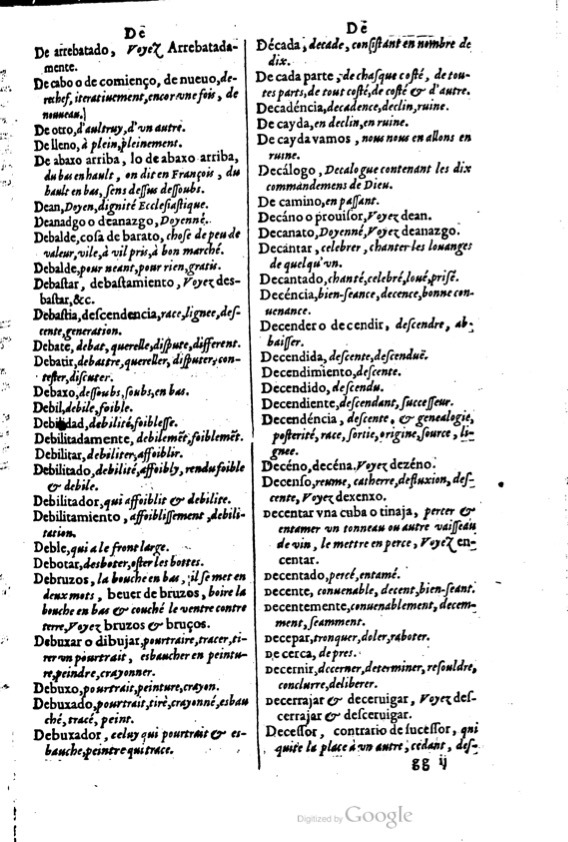 Dē
De arrebatado, Voyez Arrebatada-
mente.
De cabo o de comienço, de nueuo, de-
rechef, iteratiuement, encor vne fois, de
nouueau.
De otro, d'aultruy, d'vn autre.
De lleno, à plein, pleinement.
De abaxo arriba, lo de abaxo arriba,
du bas en hault, on dit en François, du
hault en bas, sens dessus dessoubs.
Dean, Doyen, dignité Ecclesiastique.
Deanadgo o deanazgo, Doyenné.
Debalde, cosa de barato, chose de peu de
valeur, vile, à vil pris, à bon marché.
Debalde, pour neant, pour rien, gratis.
Debastar, debastamiento, Voyez des-
bastar, &c.
Debastia, descendencia, race, lignee, des-
cente, generation.
Debate, debat, querelle, dispute, different.
Debatir, debastre, quereller, disputer, con-
tester, discuter.
Debaxo, dessoubs, soubs, en bas.
Debil, debile, foible.
Debilidad, debilité, foiblesse.
Debilitadamente, debilemēt, foiblemēt.
Debilitar, debiliter, affoiblir.
Debilitado, debilité, affoibly, rendu foible
& debile.
Debilitador, qui affoiblit & debilite.
Debilitamiento, affoiblissement, debili-
tation.
Deble, qui a le front large.
Debotar, desboter, oster les bottes.
Debruzos, la bouche en bas, il se met en
deux mots, beuer de bruzos, boire la
bouche en bas & couché le ventre contre
terre, Voyez bruzos & bruços.
Debuxar o dibujar, pourtraire, tracer, ti-
rer vn pourtrait, esbaucher en peintu-
re, peindre, crayonner.
Debuxo, pourtrait, peinture, crayon.
Debuxado, pourtrait, tiré, crayonné, esbau
ché, tracé, peint.
Debuxador, celuy qui pourtrait & es-
bauche, peintre qui trace.
Dē
Década, decade, consistant en nombre de
dix.
De cada parte, de chasque costé, de tou-
tes parts, de tout costé, de costé & d'autre.
Decadéncia, decadence, declin, ruine.
De cayda, en declin, en ruine.
De cayda vamos, nous nous en allons en
ruine.
Decálogo, Decalogue contenant les dix
commandemens de Dieu.
De camino, en passant.
Decáno o prouisor, Voyez dean.
Decanato, Doyenné, Voyez deanazgo.
Decantar, celebrer, chanter les louanges
de quelqu'vn.
Decantado, chanté, celebré, loué, prisé.
Decéncia, bien-seance, decence, bonne con-
uenance.
Decender o decendir, descendre, ab-
baisser.
Decendida, descente, descenduē.
Decendimiento, descente.
Decendido, descendu.
Decendiente, descendant, successeur.
Decendéncia, descente, & genealogie,
posterité, race, sortie, origine, source, li-
gnee.
Decéno, decéna. Voyez dezéno.
Decenso, reume, catherre, defluxion, des-
cente, Voyez dexenxo.
Decentar vna cuba o tinaja, percer &
entamer vn tonneau ou autre vaisseau
de vin, le mettre en perce, Voyez en-
centar.
Decentado, percé, entamé.
Decente, conuenable, decent, bien-seant.
Decentemente, conuenablement, decem-
ment, seamment.
Decepar, tronquer, doler, raboter.
De cerca, de pres.
Decernir, dicerner, determiner, resouldre,
conclurre, deliberer.
Decerrajar & deceruigar, Voyez des-
cerrajar & desceruigar.
Decessor, contrario de sucessor, qui
quite la place à vn autre, cedant, des-
gg ij
Digitized by Google